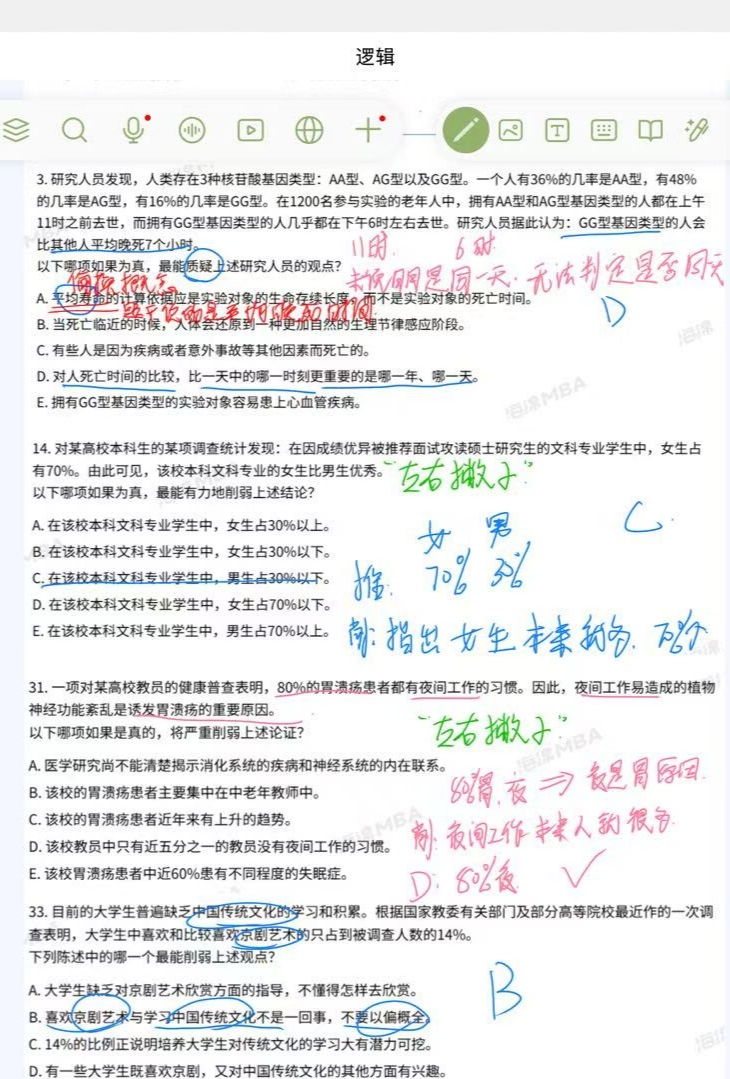 逻辑
3. 研究人员发现，人类存在3种核苷酸基因类型：AA型、AG型以及GG型。一个人有36%的几率是AA型，有48%
的几率是AG型，有16%的几率是GG型。在1200名参与实验的老年人中，拥有AA型和AG型基因类型的人都在上午
11时之前去世，而拥有GG型基因类型的人几乎都在下午6时左右去世。研究人员据此认为：GG型基因类型的人会
比其他人平均晚死7个小时。
11时. 6时
以下哪项如果为真，最能质疑上述研究人员的观点？
未说明是同一天. 无法判定是否同天
偷换概念
A. 平均寿命的计算依据应是实验对象的生命存续长度，而不是实验对象的死亡时间。
D
B. 当死亡临近的时候，人体会还原到一种更加自然的生理节律感应阶段。
C. 有些人是因为疾病或者意外事故等其他因素而死亡的。
D. 对人死亡时间的比较，比一天中的哪一时刻更重要的是哪一年、哪一天。
E. 拥有GG型基因类型的实验对象容易患上心血管疾病。
海绵MBA
14. 对某高校本科生的某项调查统计发现：在因成绩优异被推荐面试攻读硕士研究生的文科专业学生中，女生占
有70%。由此可见，该校本科文科专业的女生比男生优秀。
“左右撇子”
以下哪项如果为真，最能有力地削弱上述结论？
A. 在该校本科文科专业学生中，女生占30%以上。
女 男
C.
B. 在该校本科文科专业学生中，女生占30%以下。
C. 在该校本科文科专业学生中，男生占30%以下。
推: 70% 30%
D. 在该校本科文科专业学生中，女生占70%以下。
E. 在该校本科文科专业学生中，男生占70%以上。
削: 指出女生本来就多. 70%
31. 一项对某高校教员的健康普查表明，80%的胃溃疡患者都有夜间工作的习惯。因此，夜间工作易造成的植物
神经功能紊乱是诱发胃溃疡的重要原因。
以下哪项如果是真的，将严重削弱上述论证？
“左右撇子”
A. 医学研究尚不能清楚揭示消化系统的疾病和神经系统的内在联系。
B. 该校的胃溃疡患者主要集中在中老年教师中。
80%胃、夜 ⇒ 夜是胃原因.
C. 该校的胃溃疡患者近年来有上升的趋势。
削: 夜间工作本来人就很多.
D. 该校教员中只有近五分之一的教员没有夜间工作的习惯。
E. 该校胃溃疡患者中近60%患有不同程度的失眠症。
D: 80%夜 ✓
33. 目前的大学生普遍缺乏中国传统文化的学习和积累。根据国家教委有关部门及部分高等院校最近作的一次调
查表明，大学生中喜欢和比较喜欢京剧艺术的只占到被调查人数的14%。
下列陈述中的哪一个最能削弱上述观点？
A. 大学生缺乏对京剧艺术欣赏方面的指导，不懂得怎样去欣赏。
B
B. 喜欢京剧艺术与学习中国传统文化不是一回事，不要以偏概全。
C. 14%的比例正说明培养大学生对传统文化的学习大有潜力可挖。
D. 有一些大学生既喜欢京剧，又对中国传统文化的其他方面有兴趣。